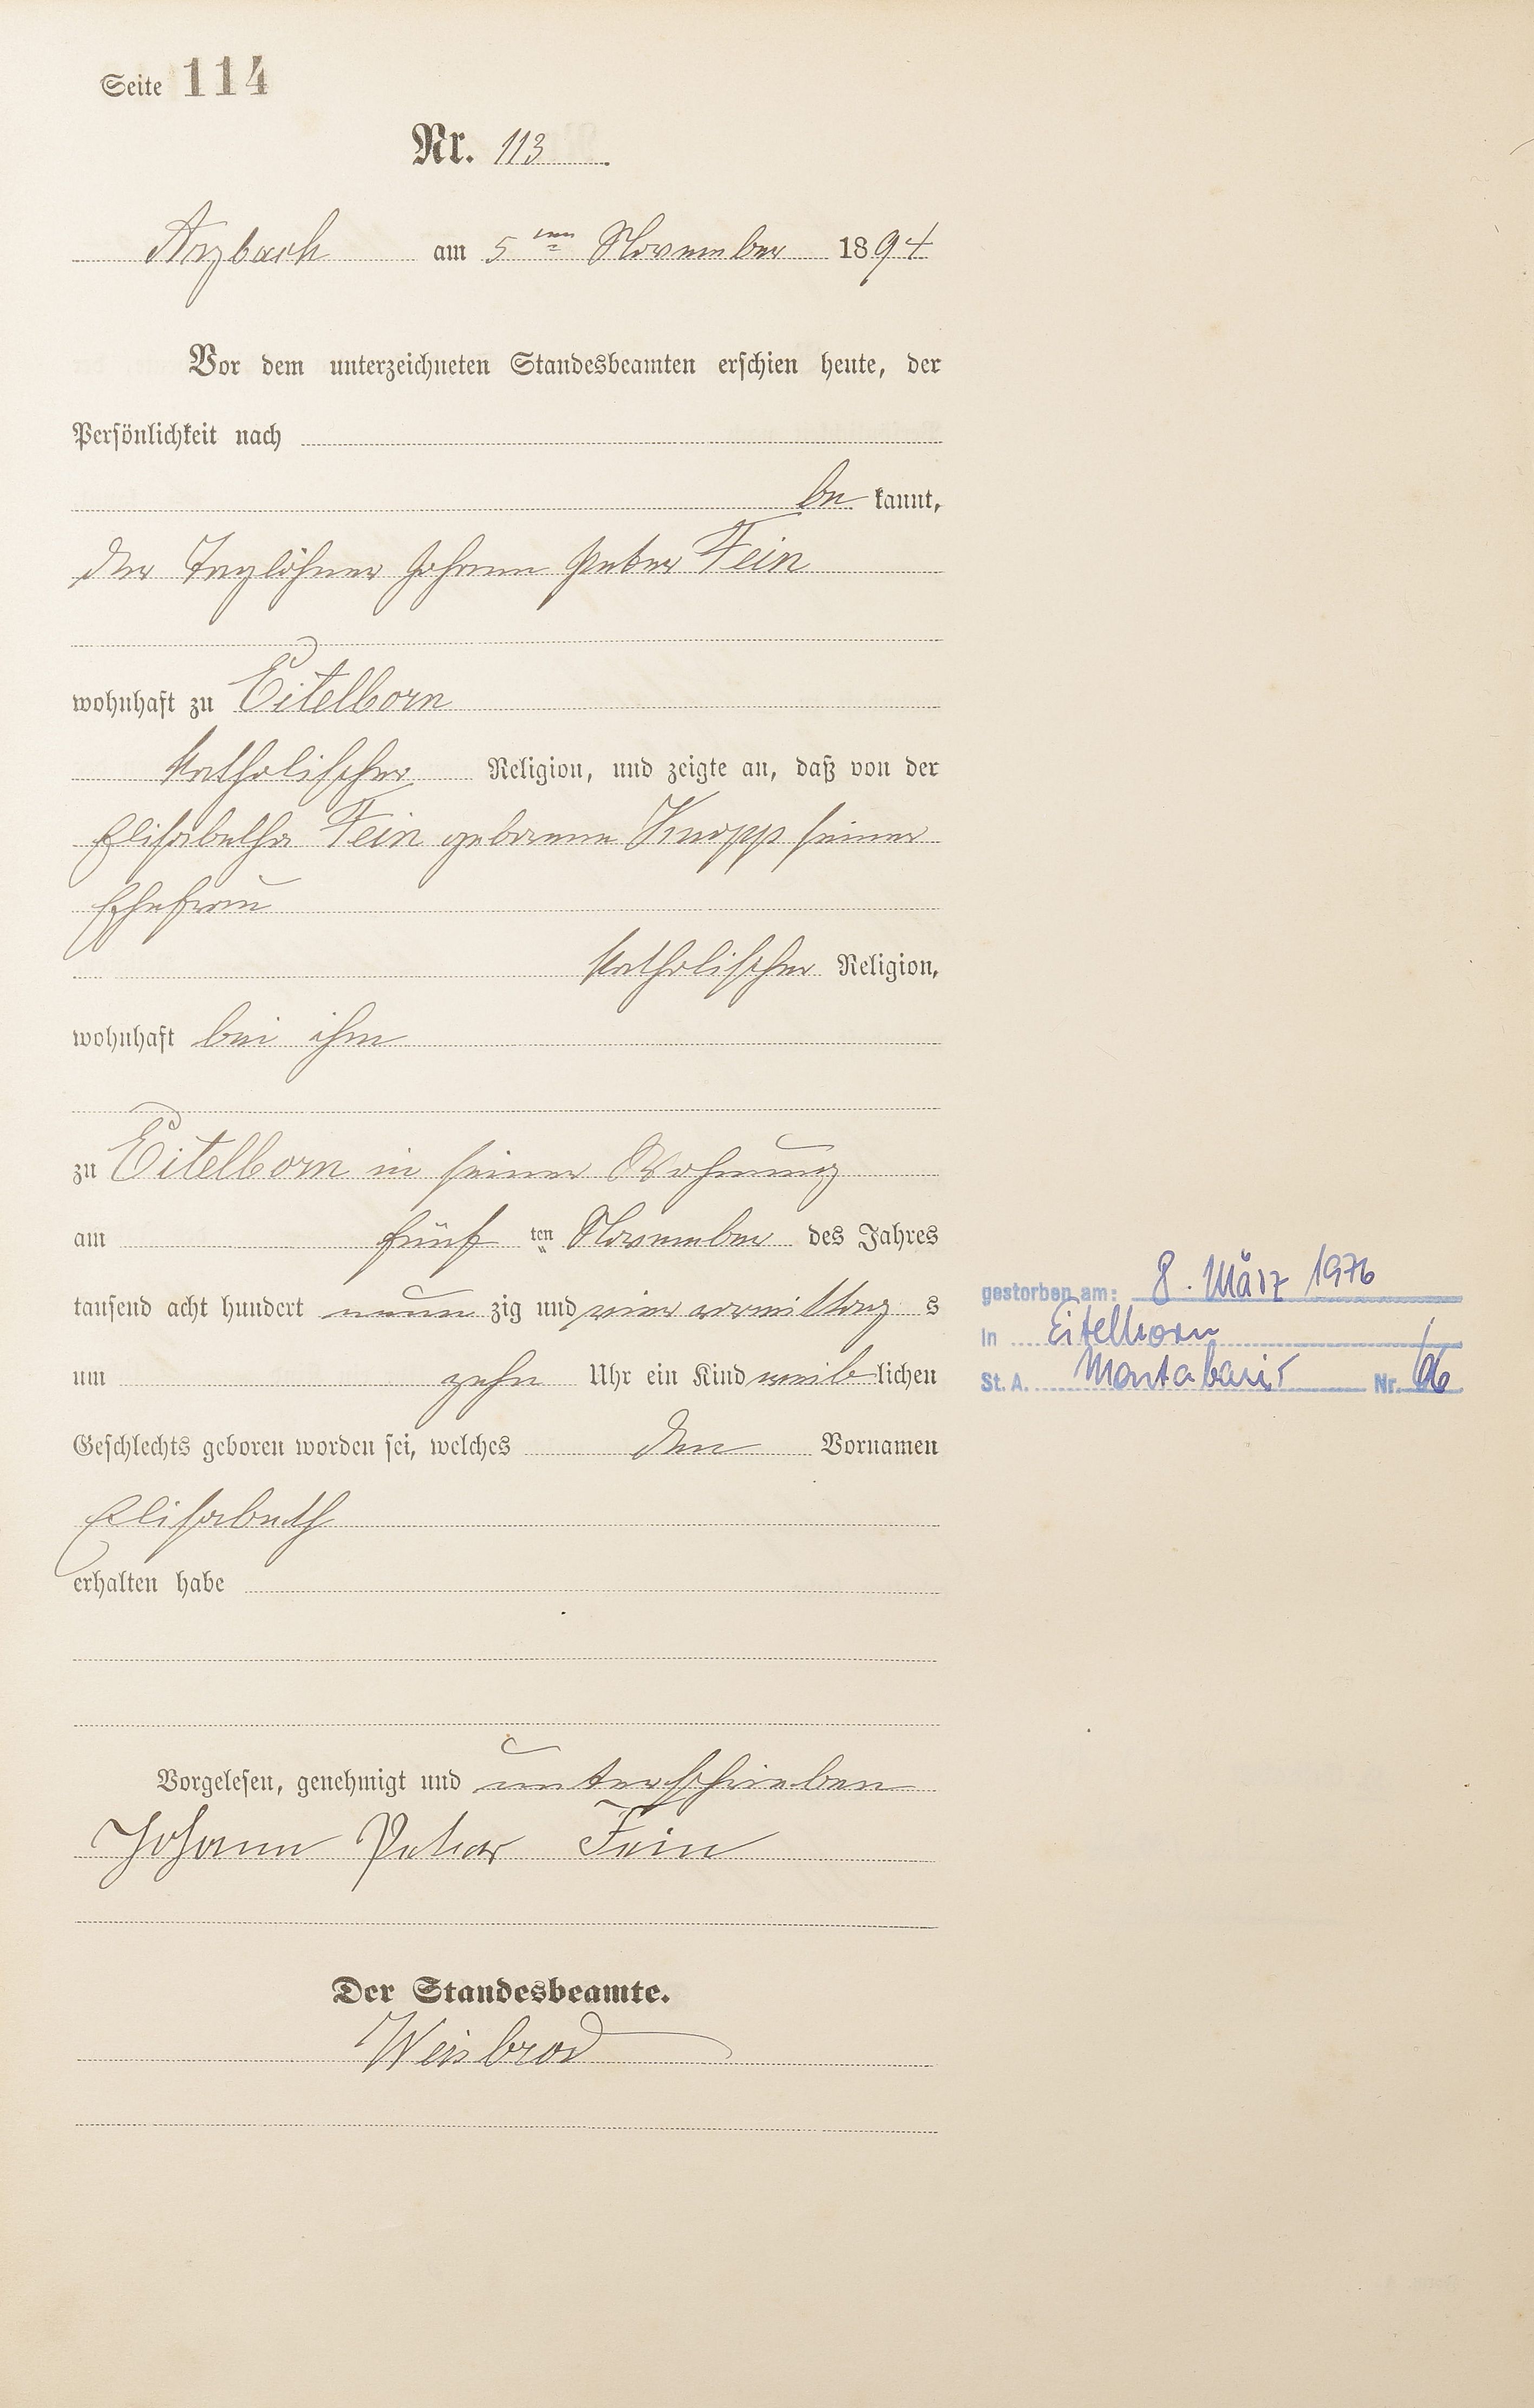 Seite 114
Nr. 113
Arzbach am 5ten November 1894
Vor dem unterzeichneten Standesbeamten erschien heute, der
Persönlichkeit nach
be kannt,
der Taglöhner Johann Peter Fein
wohnhaft zu Eitelborn
katholischer Religion, und zeigte an, daß von der
Elisabetha Fein geborene Knopp seiner
Ehefrau
katholischer Religion,
wohnhaft bei ihm
zu Eitelborn in seiner Wohnung
am fünf ten November des Jahres
tausend acht hundert neun zig und vier vormittag s
um zehn Uhr ein Kind weib lichen
Geschlechts geboren worden sei, welches den Vornamen
Elisabeth
erhalten habe
Vorgelesen, genehmigt und unterschrieben
Johann Peter Fein
Der Standesbeamte.
Weisbrod
gestorben am: 8. März 1976
in Eitelborn
St. A. Montabaur Nr.